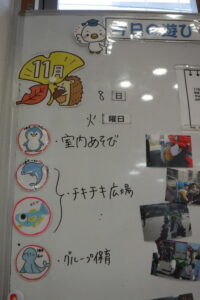 今日の遊び
11月
8 日
火 曜日
・室内あそび
・チキチキ広場
・グループ保育